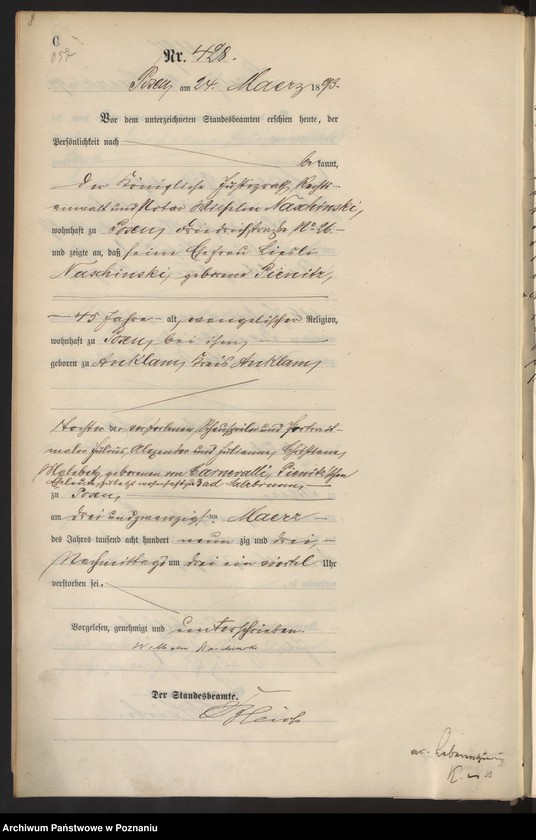 8
C.
Nr. 428.
Posen, am 24. Maerz 1893.
Vor dem unterzeichneten Standesbeamten erschien heute, der
Persönlichkeit nach
be kannt,
der Königliche Justizrath, Rechts-
anwalt und Notar Wilhelm Naschinski,
wohnhaft zu Posen, Friedrichstraße No 26.
und zeigte an, daß seine Ehefrau
Naschinski, geborene Pienitz,
45 Jahre alt, evangelischer Religion,
wohnhaft zu Posen, bei ihm
geboren zu Anklam, Kreis Anklam,
Tochter der verstorbenen Schauspieler und Portrait-
maler Julius Alexander und Julianne Christiane
geborenen von Pienitz'schen
Eheleute, zuletzt wohnhaft zu Bad Salzbrunn
zu Posen,
am drei und zwanzigsten Maerz
des Jahres tausend acht hundert neun zig und drei,
Nachmittags um drei ein viertel Uhr
verstorben sei.
Vorgelesen, genehmigt und unterschrieben.
Wilhelm Naschinski
Der Standesbeamte.
Archiwum Państwowe w Poznaniu